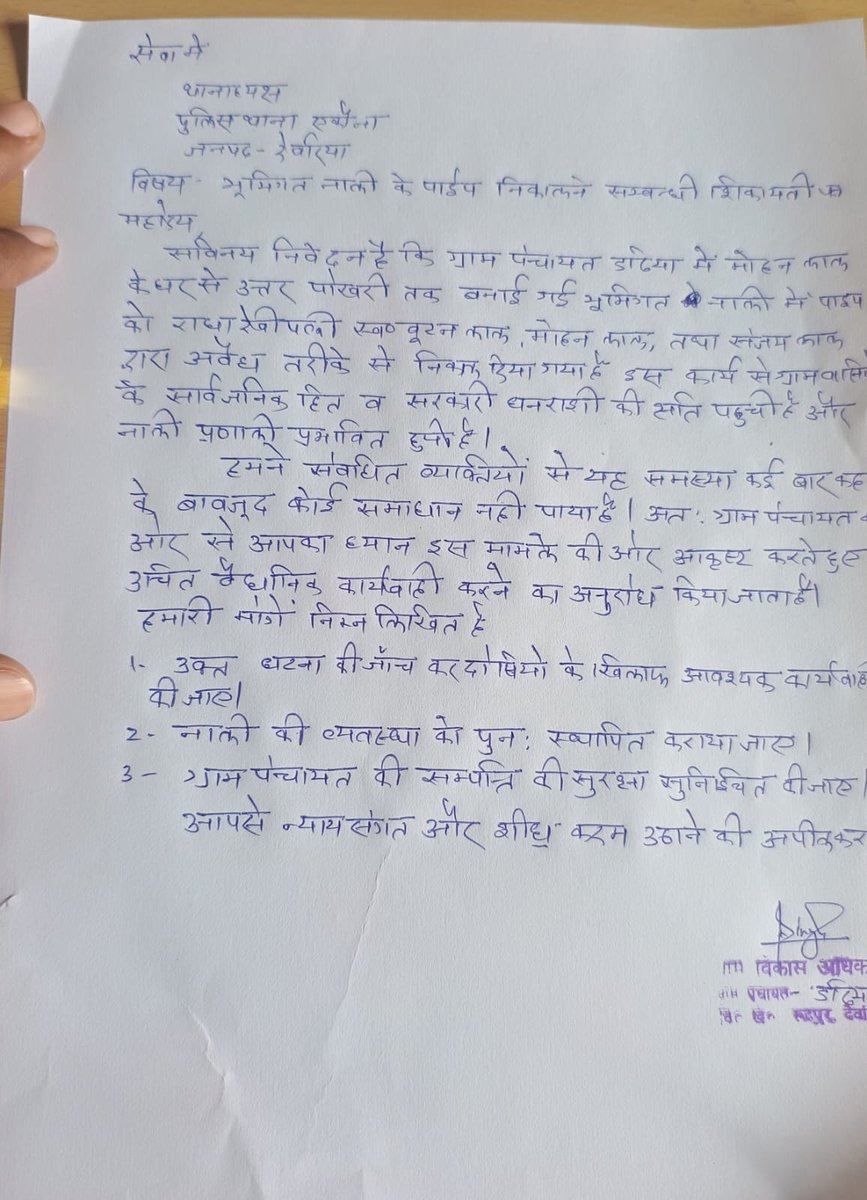 सेवा में
थानाध्यक्ष
पुलिस थाना एकौना
जनपद - देवरिया
विषय - भूमिगत नाली के पाईप निकालने सम्बन्धी शिकायती
महोदय,
सविनय निवेदन है कि ग्राम पंचायत डढिया में मोहन लाल
के घर से उत्तर पोखरी तक बनाई गई भूमिगत नाली में पाइप
को राधा देवी पत्नी स्व० बूटन लाल, मोहन लाल, तथा संजय लाल
द्वारा अवैध तरीके से निकाल दिया गया है इस कार्य से ग्रामवासि
के सार्वजनिक हित व सरकारी धनराशी की क्षति पहुची है और
नाली प्रणाली प्रभावित हुयी है।
हमने संबंधित व्यक्तियों से यह समस्या कई बार कह
के बावजूद कोई समाधान नही पाया है। अत: ग्राम पंचायत
ओर से आपका ध्यान इस मामले की ओर आकृष्ट करते हुए
उचित वैधानिक कार्यवाही करने का अनुरोध किया जाता है।
हमारी मांगें निम्न लिखित है
1- उक्त घटना की जाँच कर दोषियो के खिलाफ आवश्यक कार्यवाही
की जाए।
2- नाली की व्यवस्था को पुन: स्थापित कराया जाए।
3- ग्राम पंचायत की सम्पत्ति की सुरक्षा सुनिश्चित की जाए।
आपसे न्याय संगत और शीघ्र कदम उठाने की अपील कर
विकास अधिक
पंचायत- डढिय
रूद्रपुर देवा